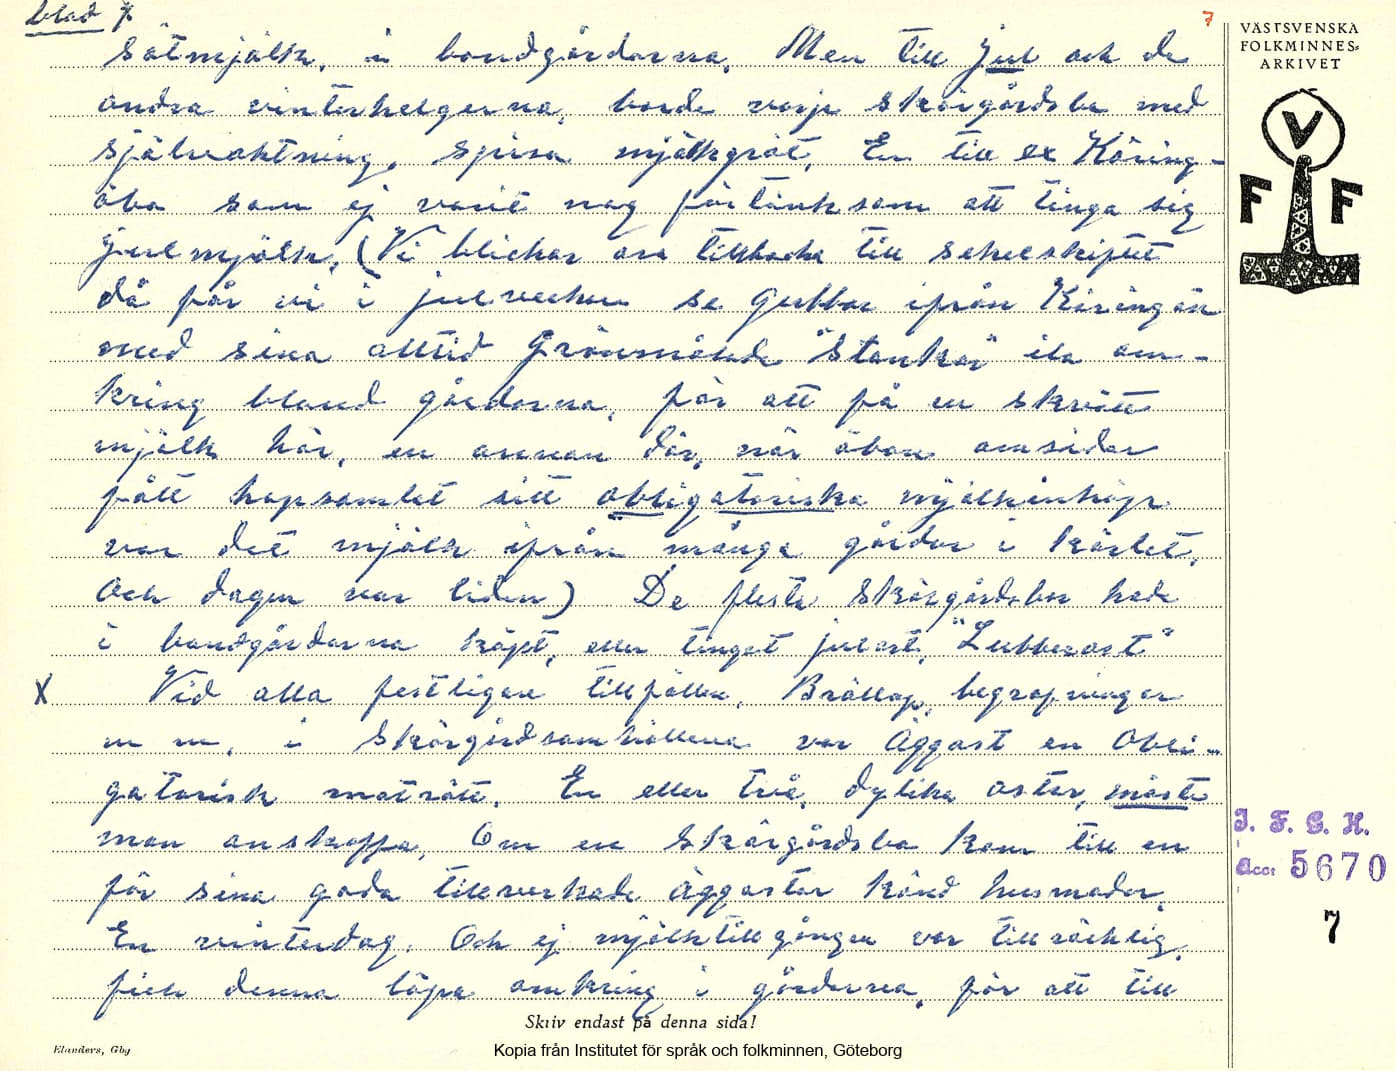 blad 7
7
VÄSTSVENSKA
FOLKMINNES-
ARKIVET
V
F F
sötmjölk, i bondgårdarna. Men till Jul och de
andra vinterhelgerna, borde varje skärgårdsbo med
självaktning, spisa mjölkgröt. En till ex Käring-
öbo som ej varit nog förtänksam att tinga sig
julmjölk. (Vi blickar oss tillbacka till sekelskiftet
då får vi i julveckan se gubbar ifrån Käringön
med sina alltid Grönmålade "Stankor" ila om-
kring bland gårdarna, för att få en skvätt
mjölk här, en annan där, när öbon omsider
fått hopsamlat sitt obligatoriska mjölkinköp
var det mjölk ifrån många gårdar i kärlet,
och dagen var liden) De flesta skärgårdsbor hade
i bondgårdarna köpt, eller tingat julost, "Lubberost"
X Vid alla festligare tillfällen, Bröllop, begravningar
m m, i Skärgårdsamhällena var Äggost en Obli-
gatorisk maträtt. En eller två, dylika ostar, måste
man anskaffa. Om en Skärgårdsbo kom till en
för sina goda tillverkade äggostar känd husmoder,
En vinterdag. Och ej mjölktillgången var tillräcklig,
fick denna löpa omkring i gårdarna, för att till
I. F. G. H.
acc: 5670
7
Skriv endast på denna sida!
Elanders, Gbg
Kopia från Institutet för språk och folkminnen, Göteborg